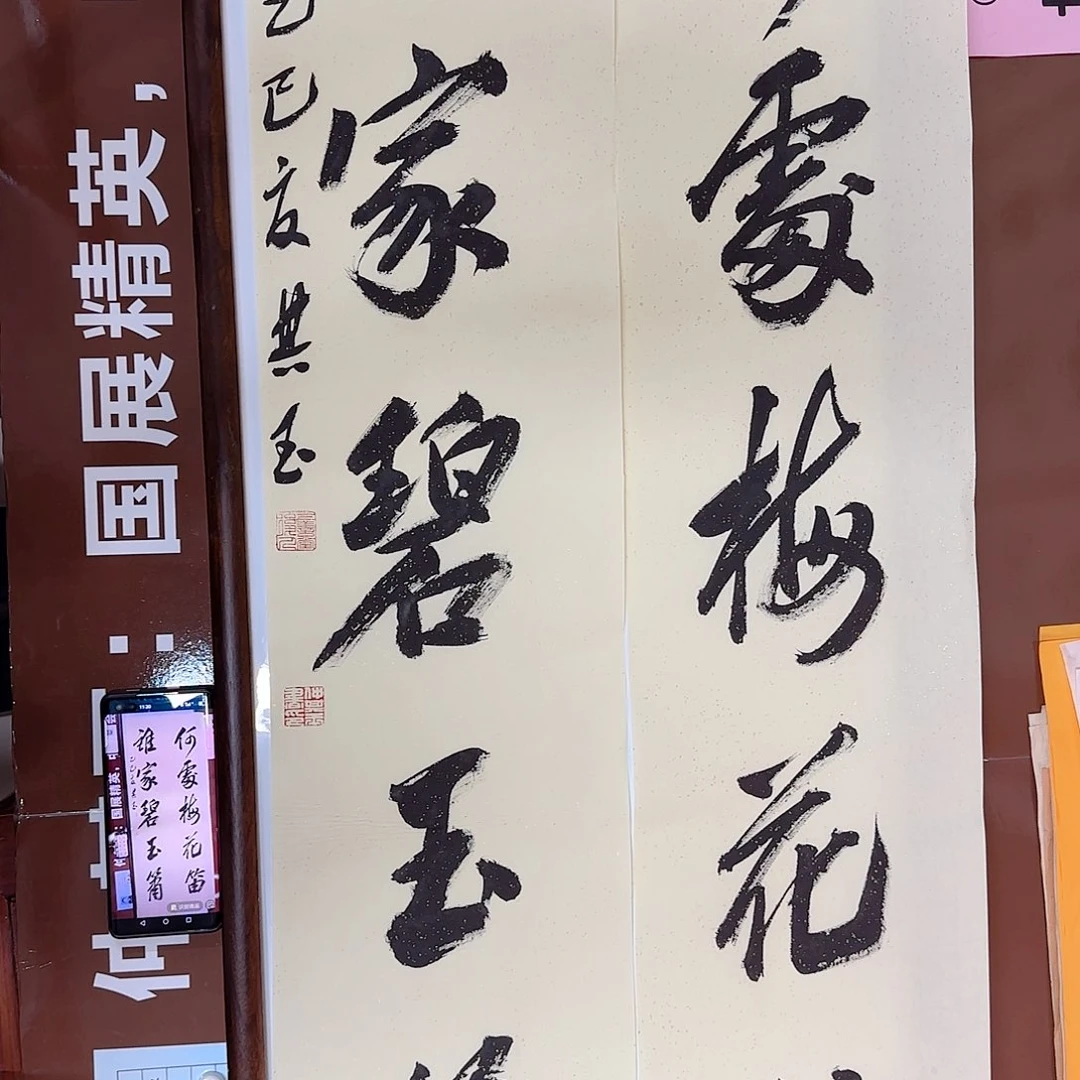 處梅花
家碧玉
乙巳夏其玉
国展精英，
何處梅花笛
誰家碧玉簫
11:20